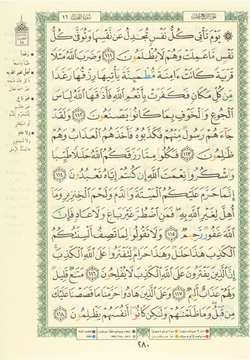 يَوْمَ تَأْتِي كُلُّ نَفْسٍ تُجَادِلُ عَن نَّفْسِهَا وَتُوَفَّىٰ كُلُّ
نَفْسٍ مَّا عَمِلَتْ وَهُمْ لَا يُظْلَمُونَ ١١١ وَضَرَبَ اللَّهُ مَثَلًا
قَرْيَةً كَانَتْ ءَامِنَةً مُّطْمَئِنَّةً يَأْتِيهَا رِزْقُهَا رَغَدًا
مِّن كُلِّ مَكَانٍ فَكَفَرَتْ بِأَنْعُمِ اللَّهِ فَأَذَاقَهَا اللَّهُ لِبَاسَ
الْجُوعِ وَالْخَوْفِ بِمَا كَانُوا يَصْنَعُونَ ١١٢ وَلَقَدْ
جَاءَهُمْ رَسُولٌ مِّنْهُمْ فَكَذَّبُوهُ فَأَخَذَهُمُ الْعَذَابُ وَهُمْ
ظَالِمُونَ ١١٣ فَكُلُوا مِمَّا رَزَقَكُمُ اللَّهُ حَلَالًا طَيِّبًا
وَاشْكُرُوا نِعْمَتَ اللَّهِ إِن كُنتُمْ إِيَّاهُ تَعْبُدُونَ ١١٤
إِنَّمَا حَرَّمَ عَلَيْكُمُ الْمَيْتَةَ وَالدَّمَ وَلَحْمَ الْخِنزِيرِ وَمَا
أُهِلَّ لِغَيْرِ اللَّهِ بِهِ فَمَنِ اضْطُرَّ غَيْرَ بَاغٍ وَلَا عَادٍ فَإِنَّ
اللَّهَ غَفُورٌ رَّحِيمٌ ١١٥ وَلَا تَقُولُوا لِمَا تَصِفُ أَلْسِنَتُكُمُ
الْكَذِبَ هَٰذَا حَلَالٌ وَهَٰذَا حَرَامٌ لِّتَفْتَرُوا عَلَى اللَّهِ الْكَذِبَ
إِنَّ الَّذِينَ يَفْتَرُونَ عَلَى اللَّهِ الْكَذِبَ لَا يُفْلِحُونَ ١١٦ مَتَاعٌ قَلِيلٌ
وَلَهُمْ عَذَابٌ أَلِيمٌ ١١٧ وَعَلَى الَّذِينَ هَادُوا حَرَّمْنَا مَا قَصَصْنَا عَلَيْكَ
مِن قَبْلُ وَمَا ظَلَمْنَاهُمْ وَلَٰكِن كَانُوا أَنفُسَهُمْ يَظْلِمُونَ ١١٨
٢٨٠